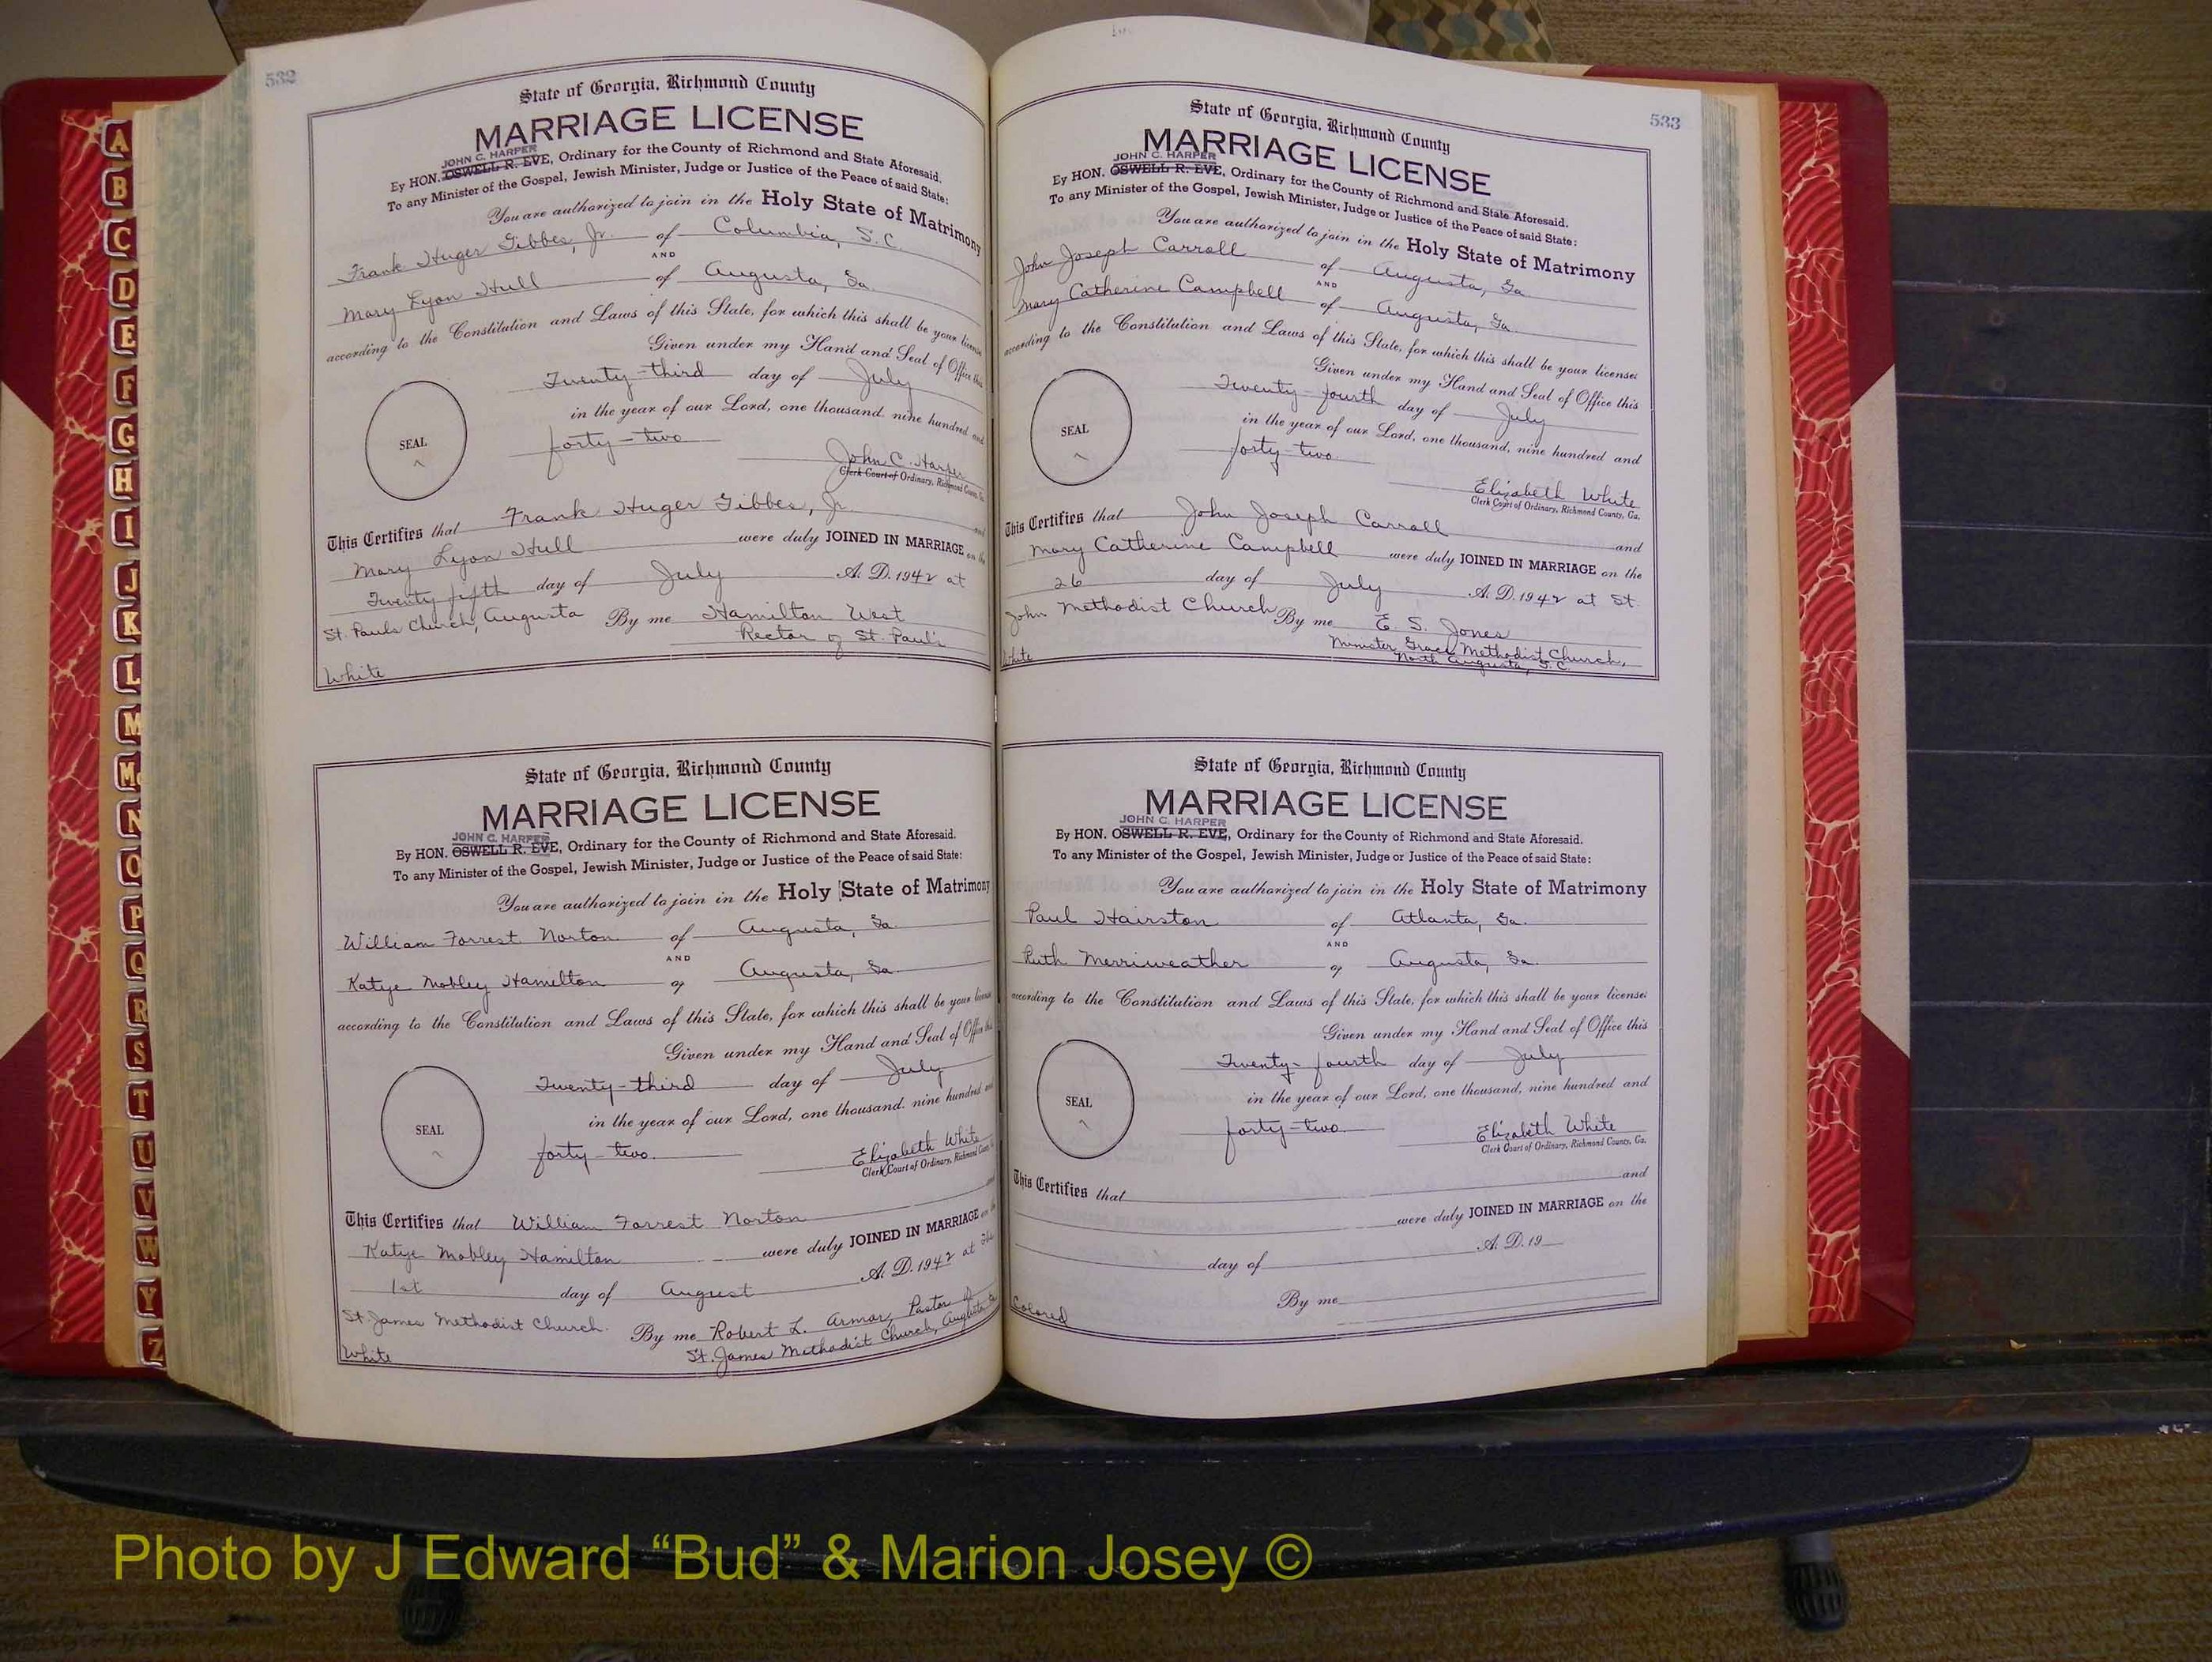 532
State of Georgia, Richmond County
MARRIAGE LICENSE
JOHN C. HARPER
By HON. OSWELL R. EVE, Ordinary for the County of Richmond and State Aforesaid.
To any Minister of the Gospel, Jewish Minister, Judge or Justice of the Peace of said State:
You are authorized to join in the Holy State of Matrimony
Frank Huger Gibbes, Jr. of Columbia, S.C.
AND
Mary Lyon Hull of Augusta, Ga.
according to the Constitution and Laws of this State, for which this shall be your license
Given under my Hand and Seal of Office this
Twenty-third day of July
in the year of our Lord, one thousand, nine hundred and
SEAL
forty-two
John C. Harper
Clerk Court of Ordinary, Richmond County, Ga.
This Certifies that Frank Huger Gibbes, Jr. and
Mary Lyon Hull were duly JOINED IN MARRIAGE on the
Twenty fifth day of July A. D. 1942 at
St. Pauls Church, Augusta By me Hamilton West
Rector of St. Paul's
White
State of Georgia, Richmond County
MARRIAGE LICENSE
JOHN C. HARPER
By HON. OSWELL R. EVE, Ordinary for the County of Richmond and State Aforesaid.
To any Minister of the Gospel, Jewish Minister, Judge or Justice of the Peace of said State:
You are authorized to join in the Holy State of Matrimony
William Forrest Norton of Augusta, Ga.
AND
Katye Mobley Hamilton of Augusta, Ga.
according to the Constitution and Laws of this State, for which this shall be your license
Given under my Hand and Seal of Office this
Twenty-third day of July
in the year of our Lord, one thousand, nine hundred and
SEAL
forty-two.
Elizabeth White
Clerk Court of Ordinary, Richmond County
This Certifies that William Forrest Norton
Katye Mobley Hamilton were duly JOINED IN MARRIAGE on the
1st day of August A. D. 1942 at
St. James Methodist Church. By me Robert L. Armor, Pastor of
St. James Methodist Church, Augusta Ga
White
533
State of Georgia, Richmond County
MARRIAGE LICENSE
JOHN C. HARPER
By HON. OSWELL R. EVE, Ordinary for the County of Richmond and State Aforesaid.
To any Minister of the Gospel, Jewish Minister, Judge or Justice of the Peace of said State:
You are authorized to join in the Holy State of Matrimony
John Joseph Carroll of Augusta, Ga.
AND
Mary Catherine Campbell of Augusta, Ga.
according to the Constitution and Laws of this State, for which this shall be your license:
Given under my Hand and Seal of Office this
Twenty fourth day of July
in the year of our Lord, one thousand, nine hundred and
SEAL
forty-two.
Elizabeth White
Clerk Court of Ordinary, Richmond County, Ga.
This Certifies that John Joseph Carroll and
Mary Catherine Campbell were duly JOINED IN MARRIAGE on the
26 day of July A. D. 1942 at St
John Methodist Church By me E. S. Jones
Minister Grace Methodist Church,
North Augusta, S.C.
White
State of Georgia, Richmond County
MARRIAGE LICENSE
JOHN C. HARPER
By HON. OSWELL R. EVE, Ordinary for the County of Richmond and State Aforesaid.
To any Minister of the Gospel, Jewish Minister, Judge or Justice of the Peace of said State:
You are authorized to join in the Holy State of Matrimony
Paul Hairston of Atlanta, Ga.
AND
Ruth Merriweather of Augusta, Ga.
according to the Constitution and Laws of this State, for which this shall be your license:
Given under my Hand and Seal of Office this
Twenty-fourth day of July
in the year of our Lord, one thousand, nine hundred and
SEAL
forty-two.
Elizabeth White
Clerk Court of Ordinary, Richmond County, Ga.
This Certifies that and
were duly JOINED IN MARRIAGE on the
day of A. D. 19
By me
Colored
A
B
C
D
E
F
G
H
I
J
K
L
M
Mc
N
O
P
Q
R
S
T
U
V
W
Y
Z
Photo by J Edward “Bud” & Marion Josey ©